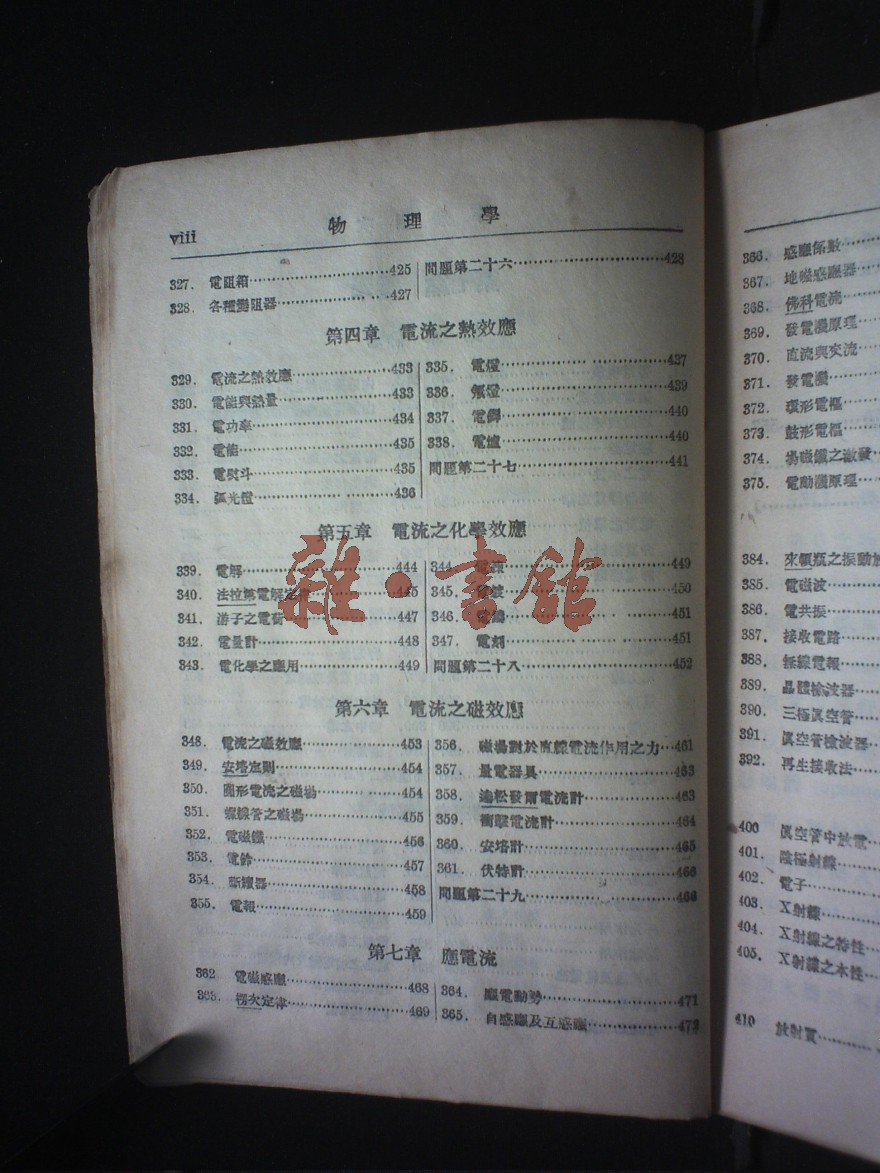 viii 物理學
327. 電阻箱……425
328. 各種變阻器……427
問題第二十六……428
第四章 電流之熱效應
329. 電流之熱效應……433
330. 電能與熱量……433
331. 電功率……434
332. 電能……435
333. 電熨斗……435
334. 弧光燈……436
335. 電燈……437
336. 氖燈……439
337. 電鐲……440
338. 電爐……440
問題第二十七……441
第五章 電流之化學效應
339. 電解……444
340. 法拉第電解定律……445
341. 游子之電荷……447
342. 電量計……448
343. 電化學之應用……449
344. 電……449
345. 電鍍……450
346. 電鑄……451
347. 電刻……451
問題第二十八……452
雜·書館
第六章 電流之磁效應
348. 電流之磁效應……453
349. 安培定則……454
350. 圓形電流之磁場……454
351. 螺線管之磁場……455
352. 電磁鐵……456
353. 電鈴……457
354. 斷續器……458
355. 電報……459
356. 磁場對於直線電流作用之力……461
357. 量電器具……463
358. 達松發爾電流計……463
359. 衝擊電流計……464
360. 安培計……465
361. 伏特計……466
問題第二十九……466
第七章 應電流
362. 電磁感應……468
363. 楞次定律……469
364. 應電動勢……471
365. 自感應及互感應……473
366. 感應係數……
367. 地磁感應器……
368. 佛科電流……
369. 發電機原理……
370. 直流與交流……
371. 發電機……
372. 環形電樞……
373. 鼓形電樞……
374. 場磁鐵之激發……
375. 電動機原理……
384. 來頓瓶之振動放
385. 電磁波……
386. 電共振……
387. 接收電路……
388. 無線電報……
389. 晶體檢波器……
390. 三極眞空管……
391. 眞空管檢波器……
392. 再生接收法……
400 眞空管中放電……
401. 陰極射線……
402. 電子……
403. X射線……
404. X射線之特性……
405. X射線之本性……
410 放射質……